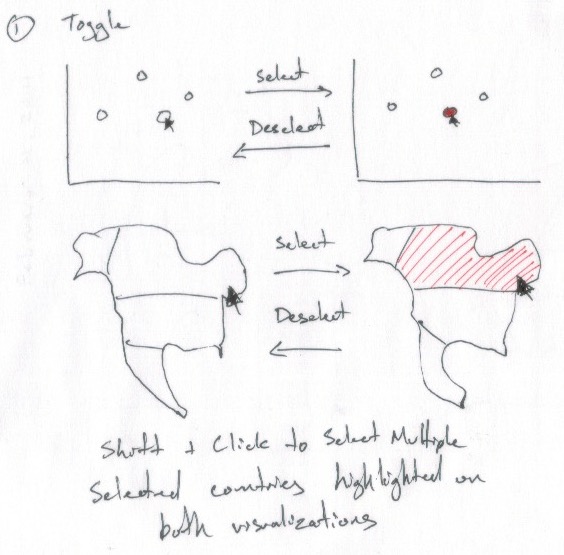 ① Toggle
Select
Deselect
Select
Deselect
Shift + Click to Select Multiple
Selected countries highlighted on
both visualizations